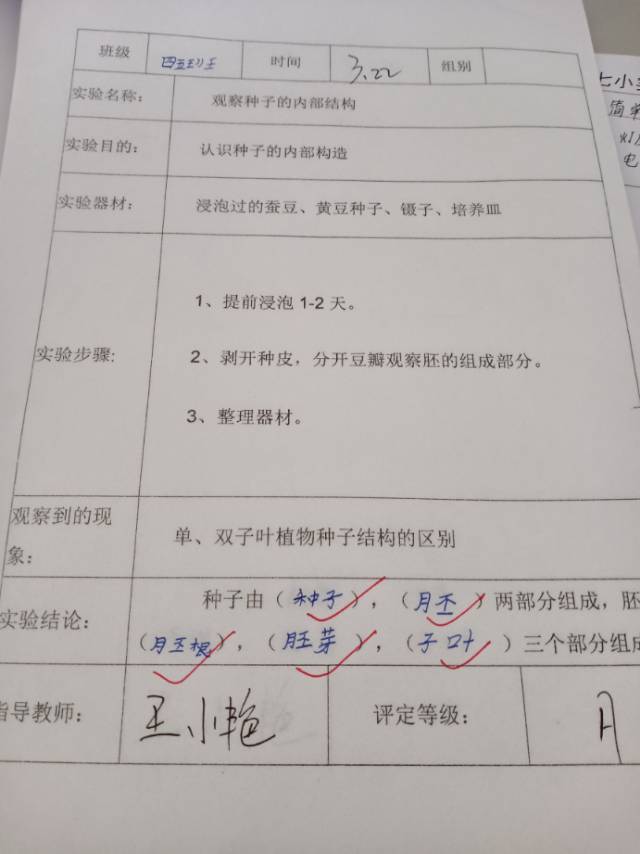 班级 四五班 时间 3.22 组别
实验名称： 观察种子的内部结构
实验目的： 认识种子的内部构造
实验器材： 浸泡过的蚕豆、黄豆种子、镊子、培养皿
实验步骤:
1、提前浸泡 1-2 天。
2、剥开种皮，分开豆瓣观察胚的组成部分。
3、整理器材。
观察到的现
象：
单、双子叶植物种子结构的区别
实验结论：
种子由（种子），（胚）两部分组成，胚
（胚根），（胚芽），（子叶）三个部分组成
指导教师： 王小艳 评定等级： A
七小
简单
电